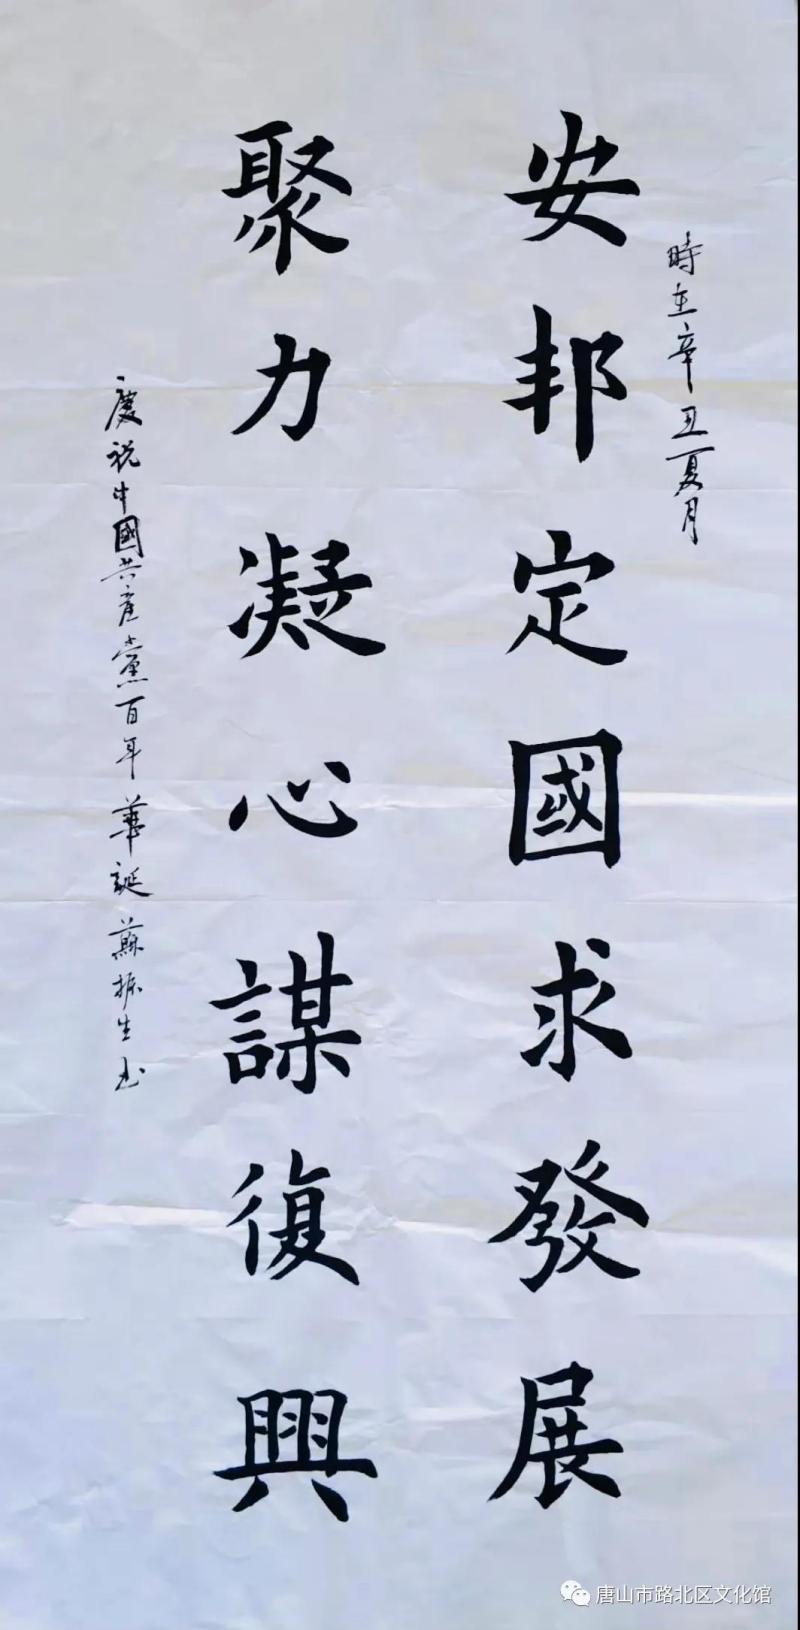 時在辛丑夏月
安邦定國求發展
聚力凝心謀復興
慶祝中國共產黨百年華誕 蘇振生书
唐山市路北区文化馆